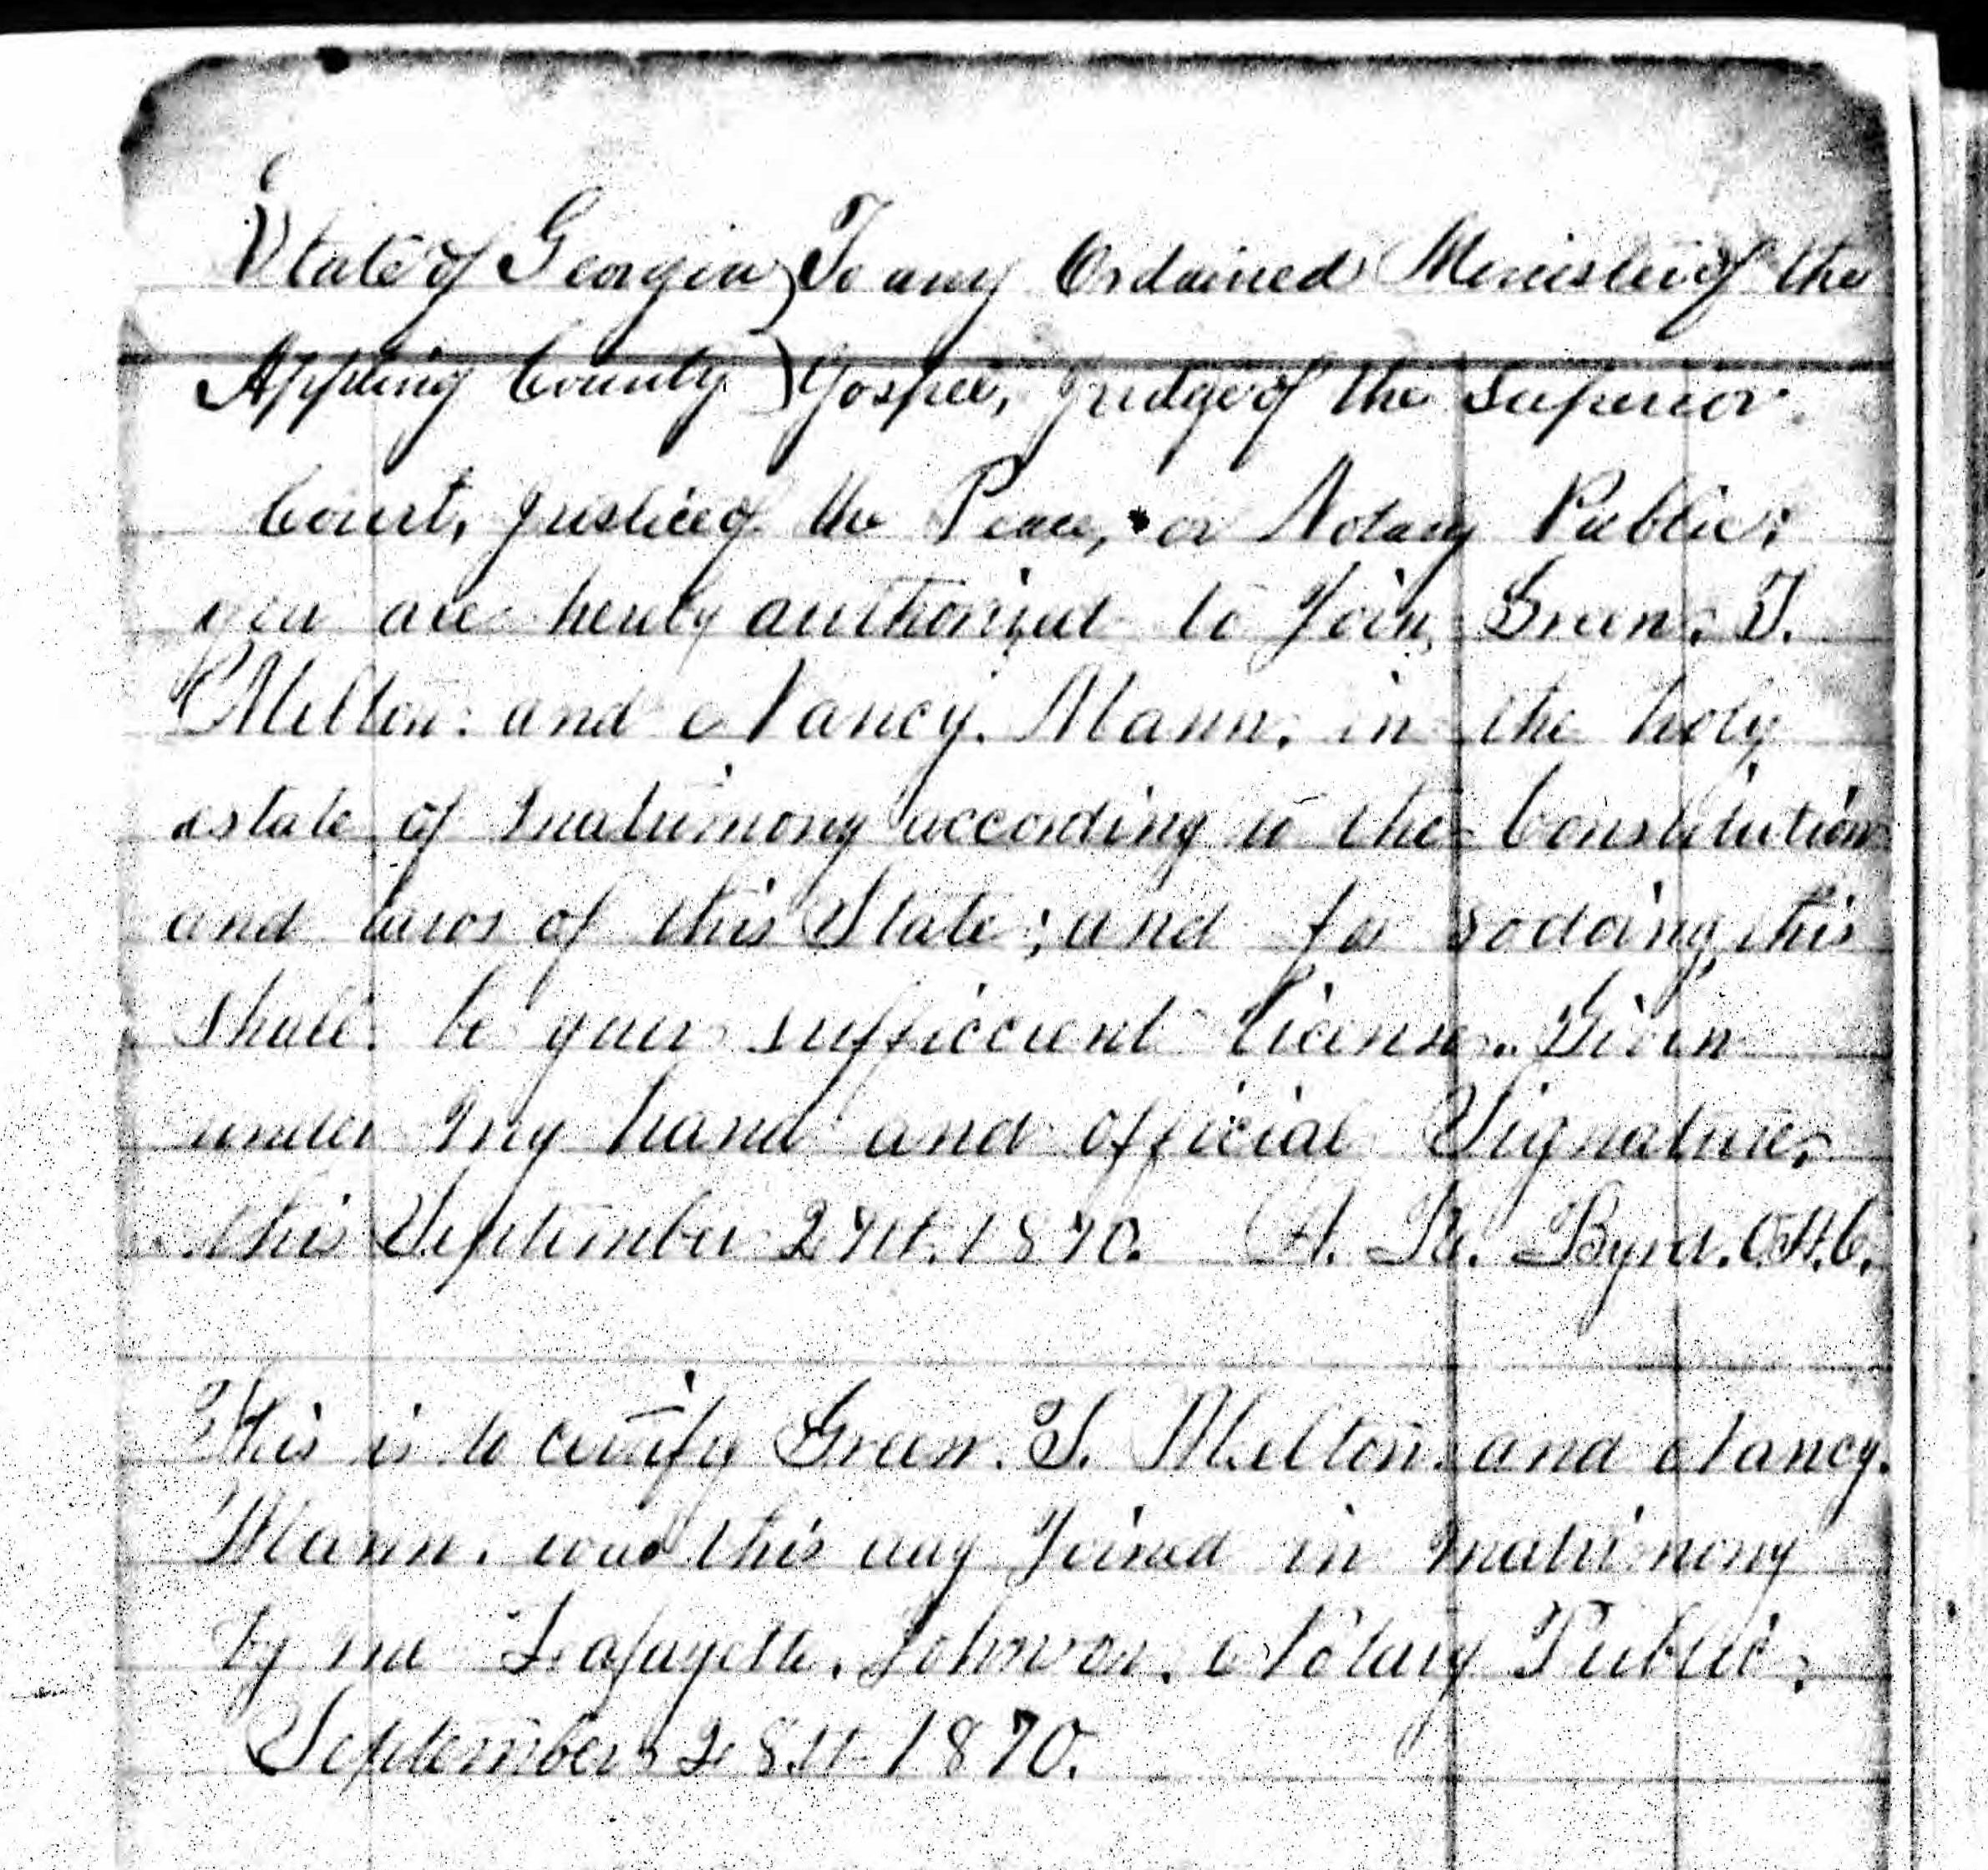 State of Georgia) To any Ordained Minister of the
Appling County) Gospel, Judge of the Superior
Court, Justice of the Peace, or Notary Public;
you are hereby authorized to Join, Green. T.
Melton. and Nancy. Mann. in the holy
estate of Matrimony according to the Constitution
and laws of this State; and for sodoing, this
Shall be your sufficcient license. Given
under My hand and official Signature,
this September 27th. 1870. Byrd. O.A.C.
This is to certify Green. T. Melton. and Nancy.
Mann. was this day Joined in Matrimony
by me Lafayette. Johnson. Notary Public,
September 28th 1870.